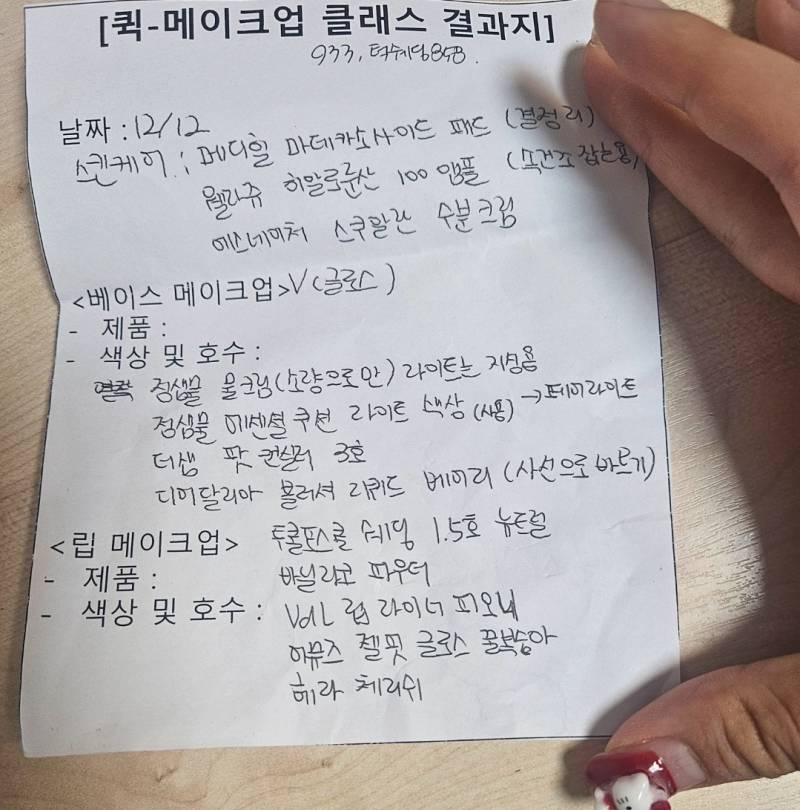 [퀵-메이크업 클래스 결과지]
933, 턱쉐딩858.
날짜 : 12/12
스킨케어 : 메디힐 마데카소사이드 패드 (결정리)
웰라쥬 히알루론산 100 앰플 (속건조 잡는용)
에스네이처 스쿠알란 수분크림
<베이스 메이크업>V (글로스)
- 제품 :
- 색상 및 호수 :
정샘물 물크림(소량으로만) 라이트는 지성용
정샘물 에센셜 쿠션 라이트 색상 (사용) → 페어라이트
더샘 팟 컨실러 3호
디어달리아 블러셔 리퀴드 베이리 (사선으로 바르기)
<립 메이크업> 투쿨포스쿨 쉐딩 1.5호 뉴트럴
- 제품 : 바닐라코 파우더
- 색상 및 호수 : VdL 립 라이너 피오니
어뮤즈 젤핏 글로스 꿀복숭아
헤라 체리쉬